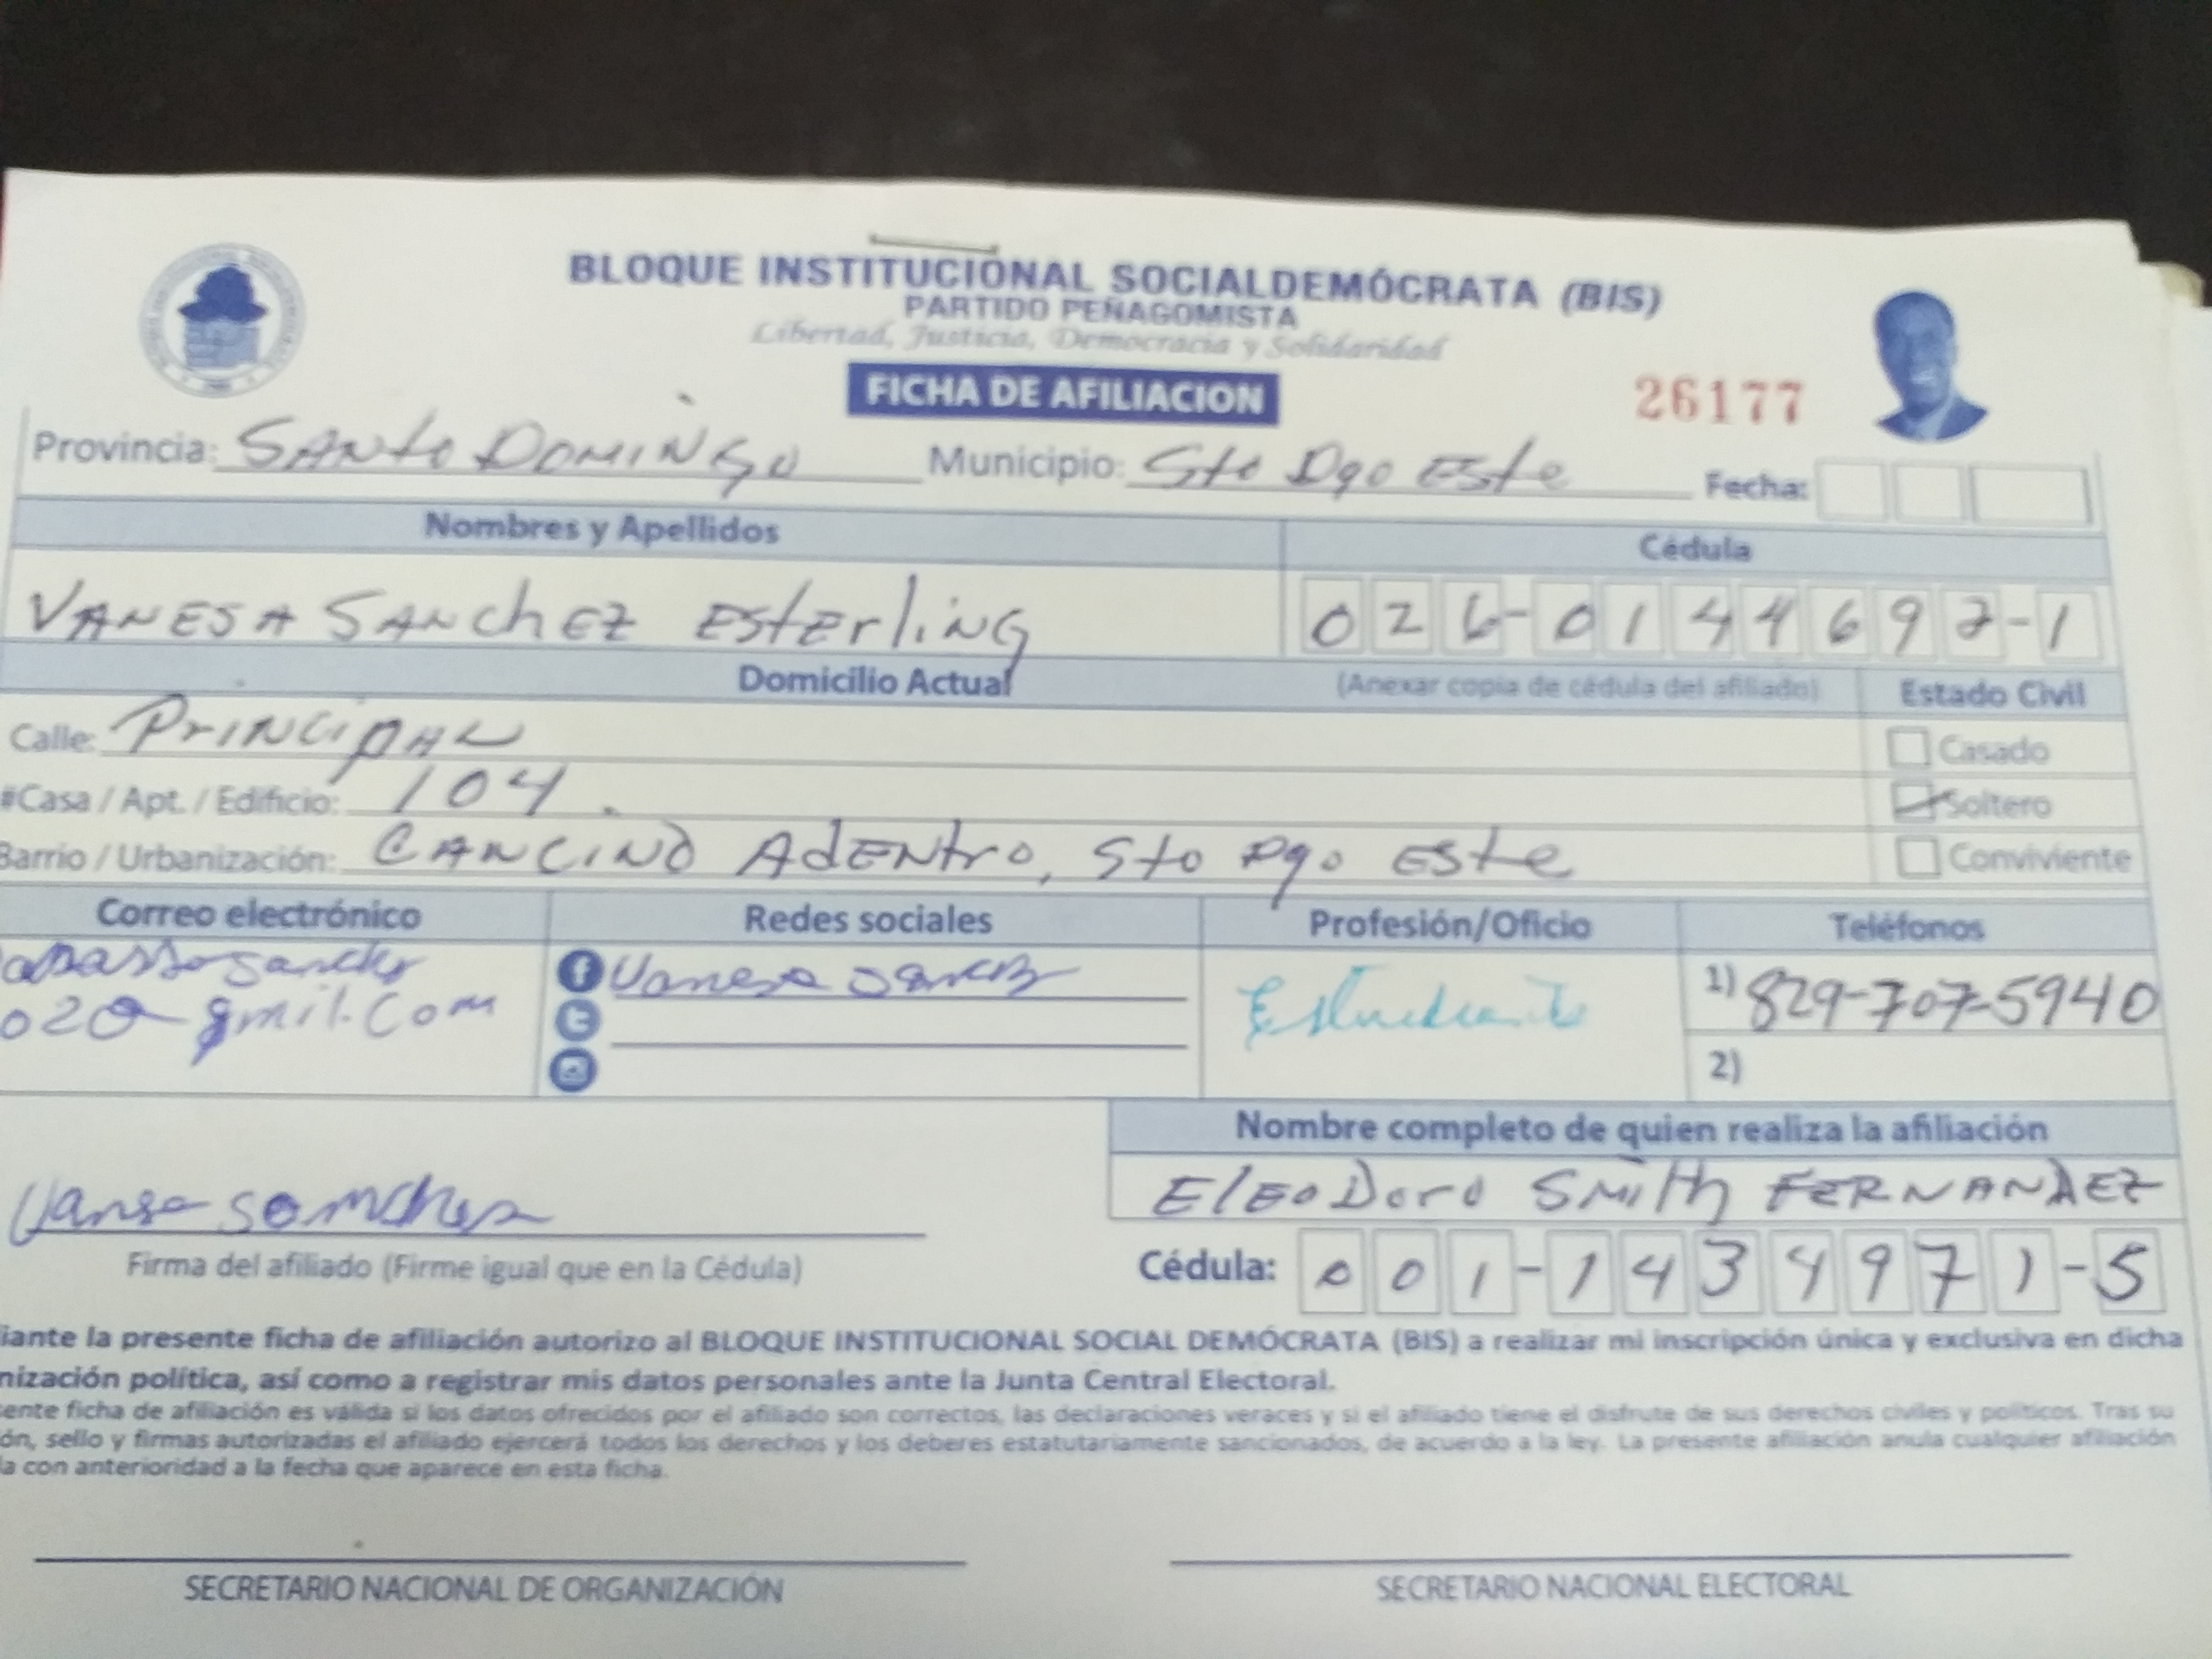 BLOQUE INSTITUCIONAL SOCIALDEMÓCRATA (BIS)
PARTIDO PEÑAGOMISTA
Libertad, Justicia, Democracia y Solidaridad
FICHA DE AFILIACION
26177
Provincia: SANto DOMINgo Municipio: Sto Dgo Este Fecha:
Nombres y Apellidos Cédula
VANESA SANchEZ EstErliNG 026-0144692-1
Domicilio Actual (Anexar copia de cédula del afiliado) Estado Civil
Calle: PriNCipAL Casado
#Casa / Apt. / Edificio: 104. Soltero
Barrio / Urbanización: CANCINO AdENtro, Sto Dgo Este Conviviente
Correo electrónico Redes sociales Profesión/Oficio Teléfonos
Vanesa Estudiante 1) 829-707-5940
020 gmil.Com
2)
Nombre completo de quien realiza la afiliación
ElEoDoro Smith FERNANDEZ
Firma del afiliado (Firme igual que en la Cédula) Cédula: 001-1434971-5
iante la presente ficha de afiliación autorizo al BLOQUE INSTITUCIONAL SOCIAL DEMÓCRATA (BIS) a realizar mi inscripción única y exclusiva en dicha
nización política, así como a registrar mis datos personales ante la Junta Central Electoral.
sente ficha de afiliación es válida si los datos ofrecidos por el afiliado son correctos, las declaraciones veraces y si el afiliado tiene el disfrute de sus derechos civiles y políticos. Tras su
ón, sello y firmas autorizadas el afiliado ejercerá todos los derechos y los deberes estatutariamente sancionados, de acuerdo a la ley. La presente afiliación anula cualquier afiliación
a con anterioridad a la fecha que aparece en esta ficha.
SECRETARIO NACIONAL DE ORGANIZACIÓN SECRETARIO NACIONAL ELECTORAL